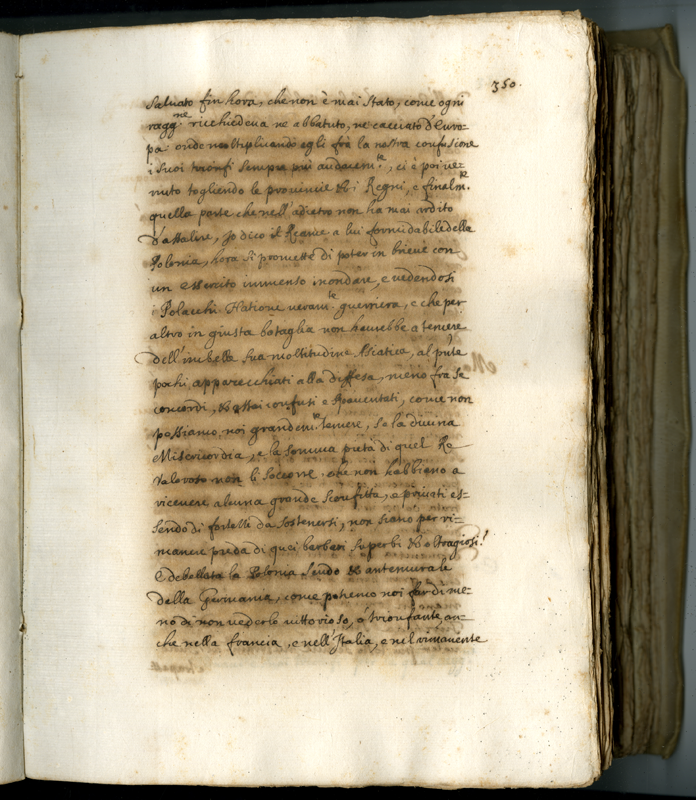 350.
salvato fin hora, che non è mai stato, come ogni
ragg.ne richiedeva ne abbatuto, ne cacciato d'Euro-
pa onde moltiplicando egli frà la nostra confusione
i suoi trionfi sempre più audacem.te, ci è poi ve-
nuto togliendo le provincie & i Regni, e finalm.te
quella parte che nell'adietro non ha mai ardito
d'assalire, Jo dico il Reame a lui formidabile della
Polonia, hora si promette di poter in brieve con
un essercito immenso inondare, e vedendosi
i Polacchi Natione veram.te guerriera, e che per
altro in giusta bataglia non haverebbe a temere
dell'imbelle sua moltitudine Asiatica, al pnte
pochi apparecchiati alla diffesa, meno fra se
concordi, & assai confusi e spaventati, come non
possiamo noi grandem.te temere, se la divina
Misericordia, e la somma pietà di quel Re
valoroso non li soccorre che non habbiano a
ricevere alcuna grande sconfitta, e privati es-
sendo di fortezze da sostenersi, non siano per ri-
manere preda di quei barbari superbi & oltragiosi!
E debellata la Polonia scudo & antemurale
della Germania, come potremo noi far di me-
no di non vederlo vittorioso, e trionfante an-
che nella francia, e nell'Italia, e nel rimanente